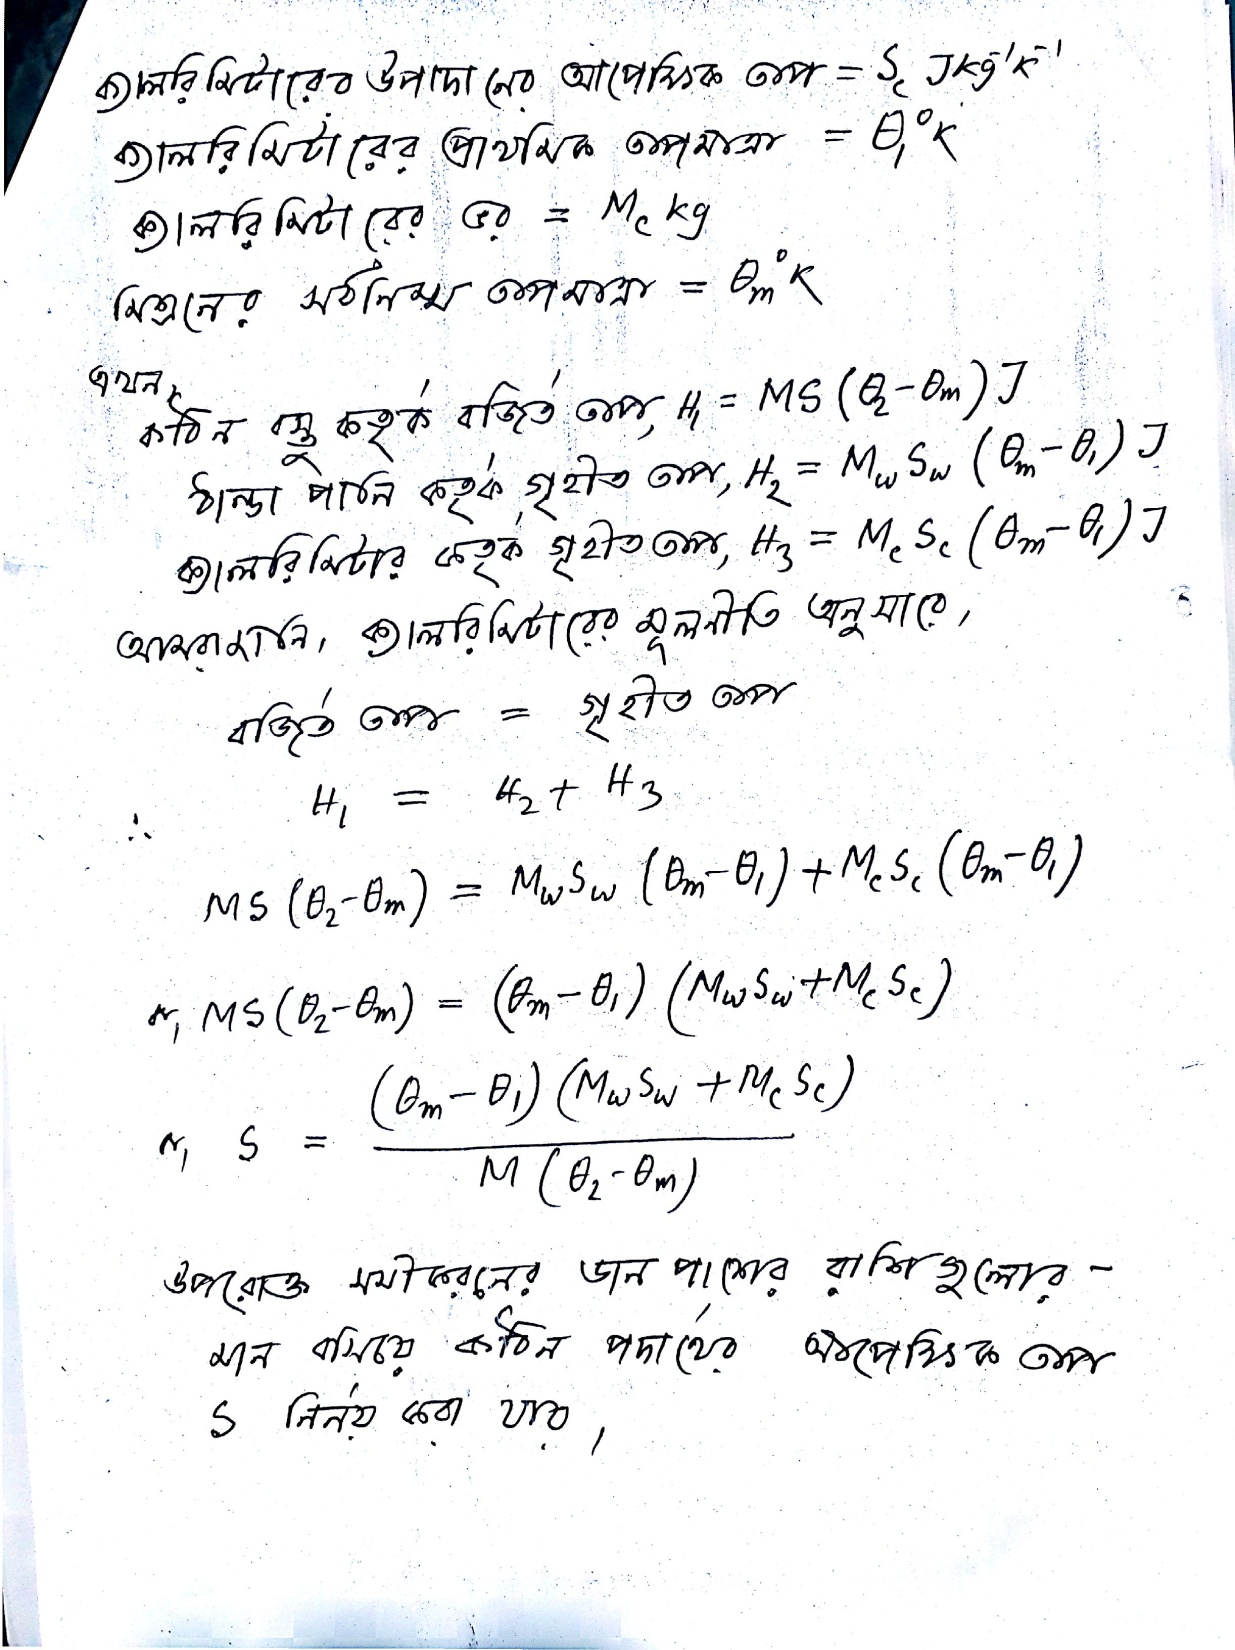 ক্যালরিমিটারের উপাদানের আপেক্ষিক তাপ = S_c Jkg⁻¹K⁻¹
ক্যালরিমিটারের প্রাথমিক তাপমাত্রা = θ₁°K
ক্যালরিমিটারের ভর = M_c kg
মিশ্রনের সর্বনিম্ম তাপমাত্রা = θ_m°K
এখন,
কঠিন বস্তু কতৃর্ক বর্জিত তাপ, H₁ = MS (θ₂-θ_m) J
ঠান্ডা পানি কতৃর্ক গৃহীত তাপ, H₂ = M_w S_w (θ_m-θ₁) J
ক্যালরিমিটার কতৃর্ক গৃহীত তাপ, H₃ = M_c S_c (θ_m-θ₁) J
আমরা জানি, ক্যালরিমিটারের মূলনীতি অনুসারে,
বর্জিত তাপ = গৃহীত তাপ
∴ H₁ = H₂ + H₃
MS (θ₂-θ_m) = M_w S_w (θ_m-θ₁) + M_c S_c (θ_m-θ₁)
বা, MS (θ₂-θ_m) = (θ_m-θ₁) (M_w S_w + M_c S_c)
(θ_m-θ₁) (M_w S_w + M_c S_c)
বা, S =
M (θ₂-θ_m)
উপরোক্ত সমীকরনের ডান পাশের রাশি গুলোর -
মান বসিয়ে কঠিন পদার্থের আপেক্ষিক তাপ
S নির্নয় করা যায়,